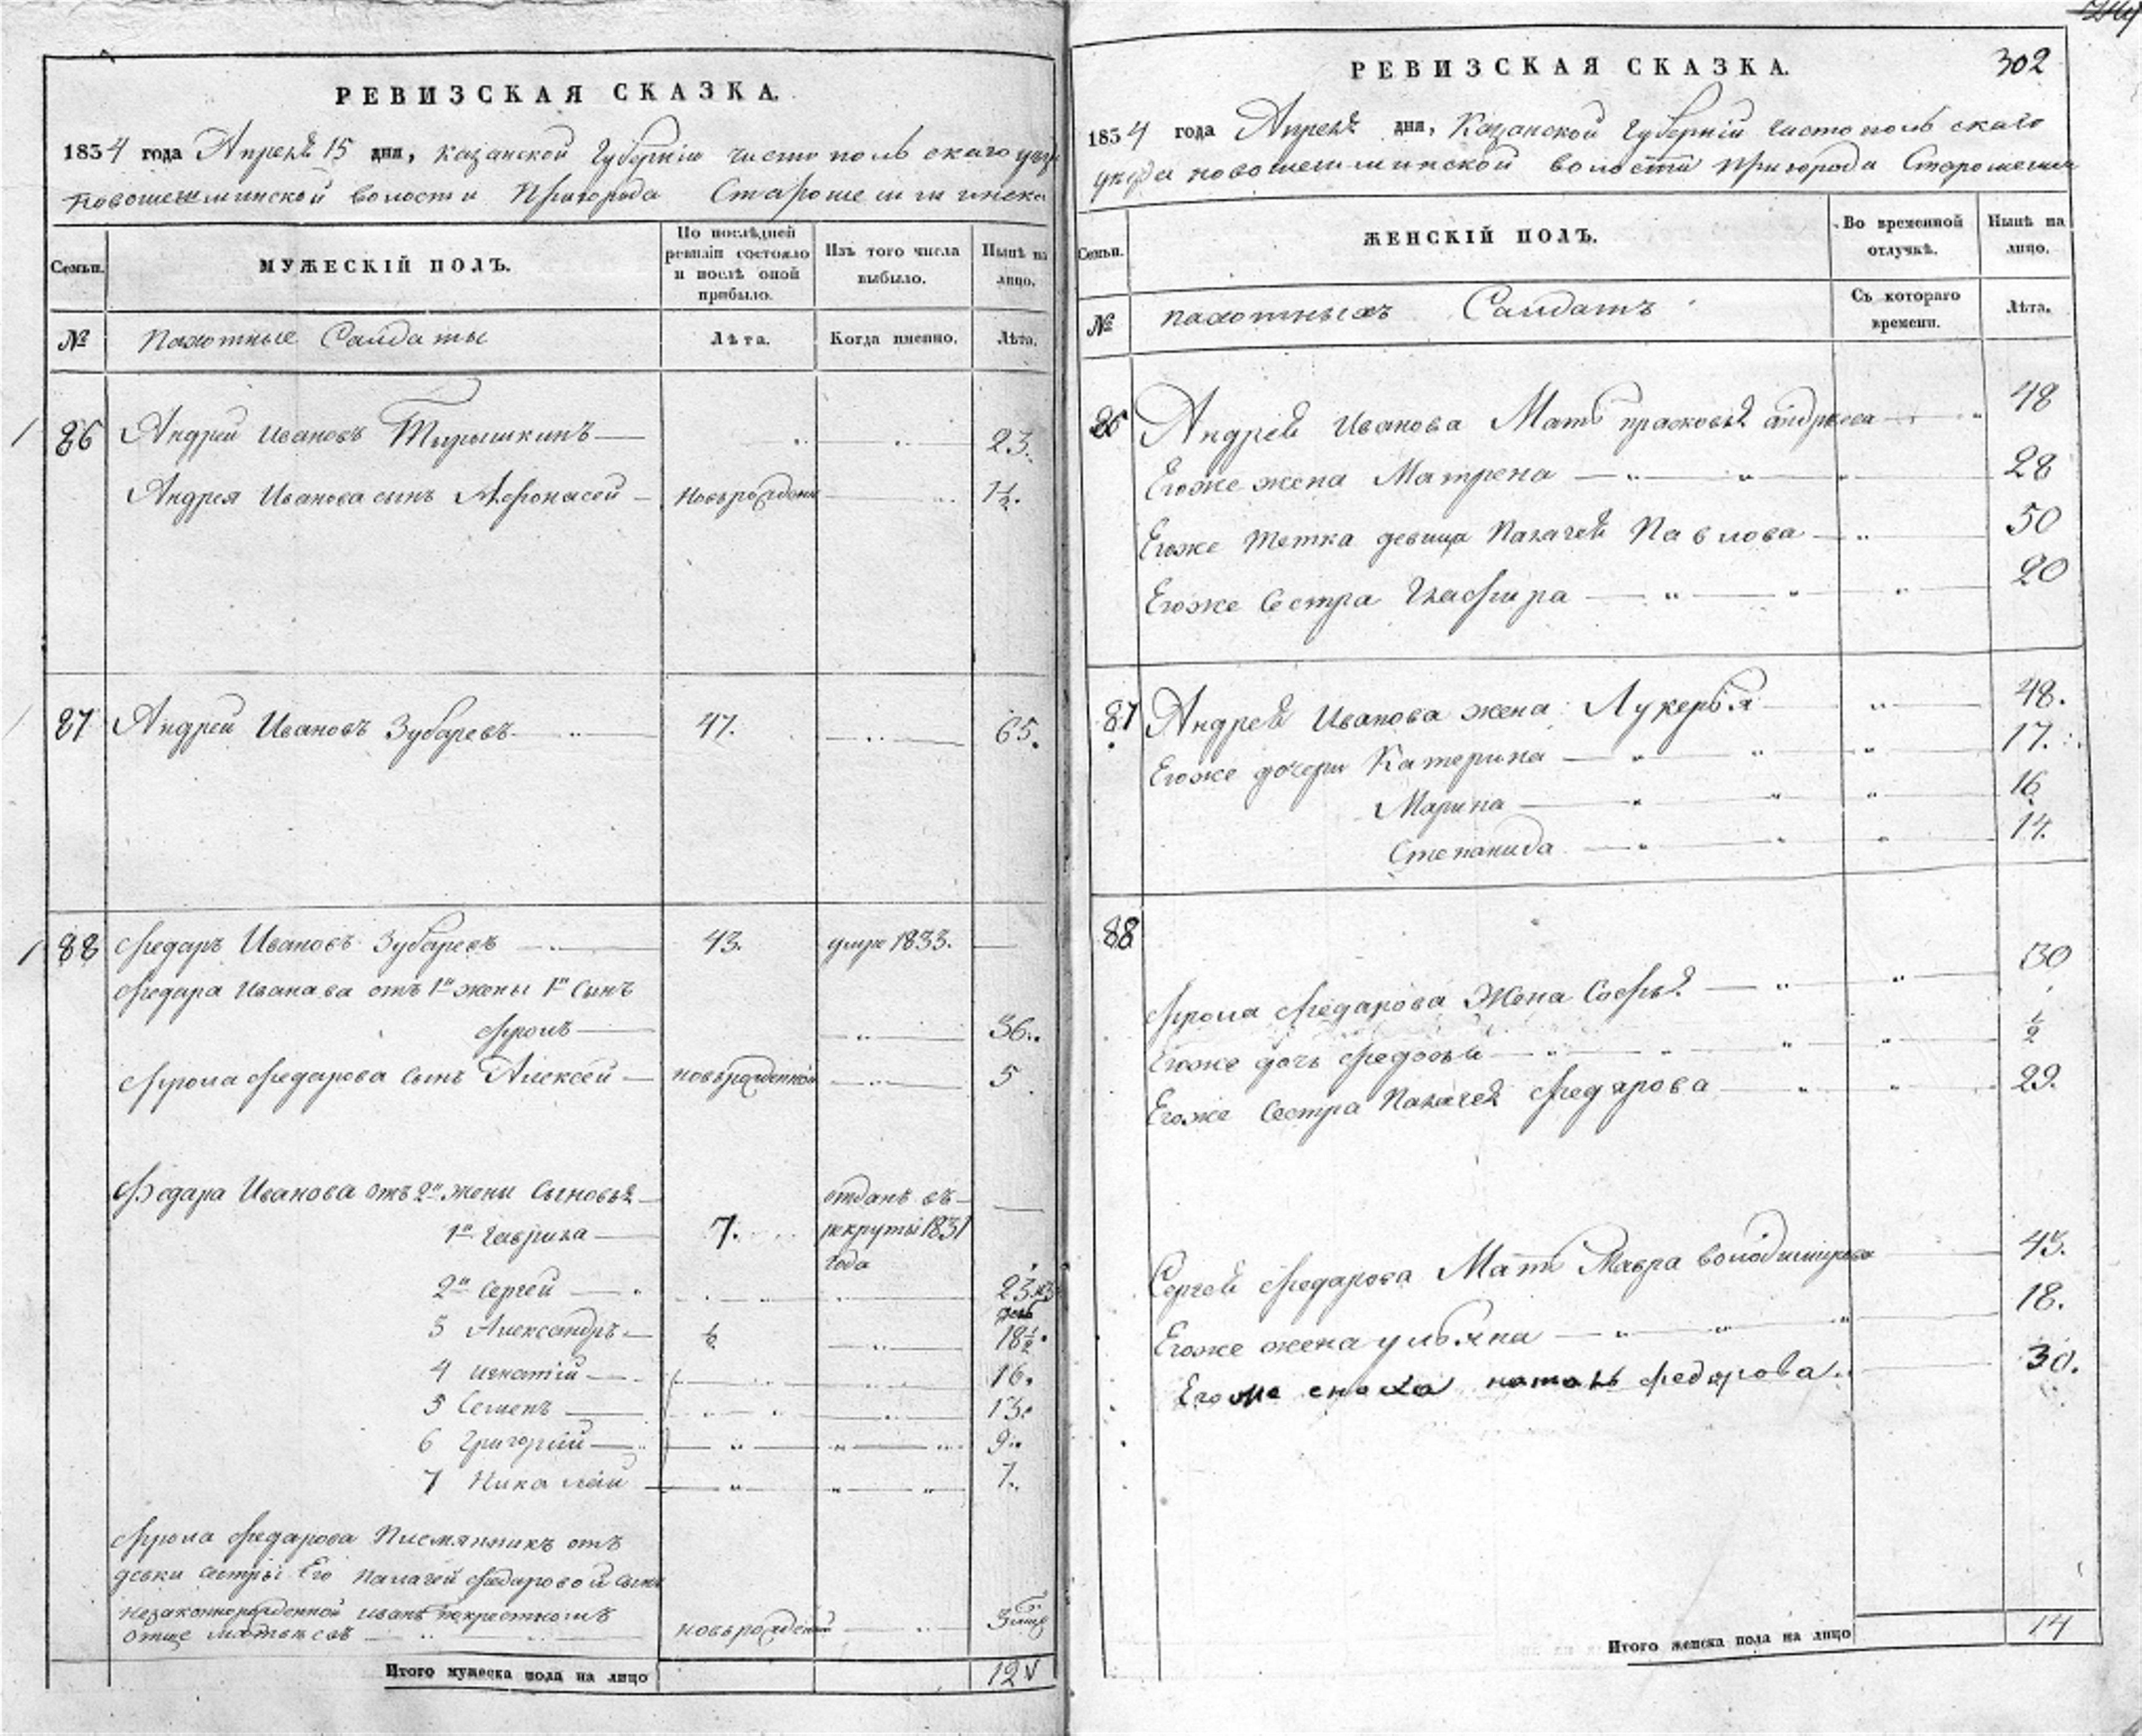 РЕВИЗСКАЯ СКАЗКА.
1834 года Апреля 15 дня, Казанской Губернiи чистопольскаго
Новошешминской волости Пригорода Старошешминска
Семьи.
МУЖЕСКІЙ ПОЛЪ.
По послѣдней ревизіи состояло и послѣ оной прибыло.
Изъ того числа выбыло.
Нынѣ на лицо.
№
Пахотные Салдаты
Лѣта.
Когда именно.
Лѣта.
86 Андрей Ивановъ Тырышкинъ 23.
Андрея Иванова сынъ Афонасей новърожденн 1½.
87 Андрей Ивановъ Зубаревъ 47. 65.
88 Федаръ Ивановъ Зубаревъ 43. умре 1833.
Федара Иванава отъ 1й жены 1й Сынъ
Фролъ 36.
Фрола Федарова сынъ Алексей новърожденной 5
Федара Иванова отъ 2й жены Сыновья отданъ въ
1й Гаврила 7. рекруты 1831
года
2й Сергей 23
3 Александръ ½ 18½.
4 игнатiй 16.
5 Семенъ 13.
6 Григорiй 9.
7 Николай 7.
Фрола Федарова Писмянникъ отъ
девки сестры Его палагей Федаровой сынъ
незаконнорожденной иванъ покрестномъ
отце новърожденный
Итого мужеска пола на лицо 12
302
РЕВИЗСКАЯ СКАЗКА.
1834 года Апреля дня, Казанской губернiи чистопольскаго
уезда новошешминской волости Пригорода Старошешминска
Семьи.
ЖЕНСКІЙ ПОЛЪ.
Во временной отлучкѣ.
Нынѣ на лицо.
№
пахотныхъ Салдатъ
Съ котораго времени.
Лѣта.
86 Андрея Иванова Мать прасковья андреева 48
Егоже жена Матрена 28
Егоже тетка девица Палагея Павлова 50
Егоже Сестра Глафира 20
87 Андрея Иванова жена Лукерья 48.
Егоже дочери Катерина 17.
Марина 16
Степанида 14.
88
Фрола Федарова Жена Софья 30
Егоже дочь Федосья ½
Егоже Сестра Палагея Федарова 29.
Сергея Федарова Мать Мавра володимирова 43.
Егоже жена ульяна 18.
Егоже сноха Федорова 30.
Итого женска пола на лицо 14